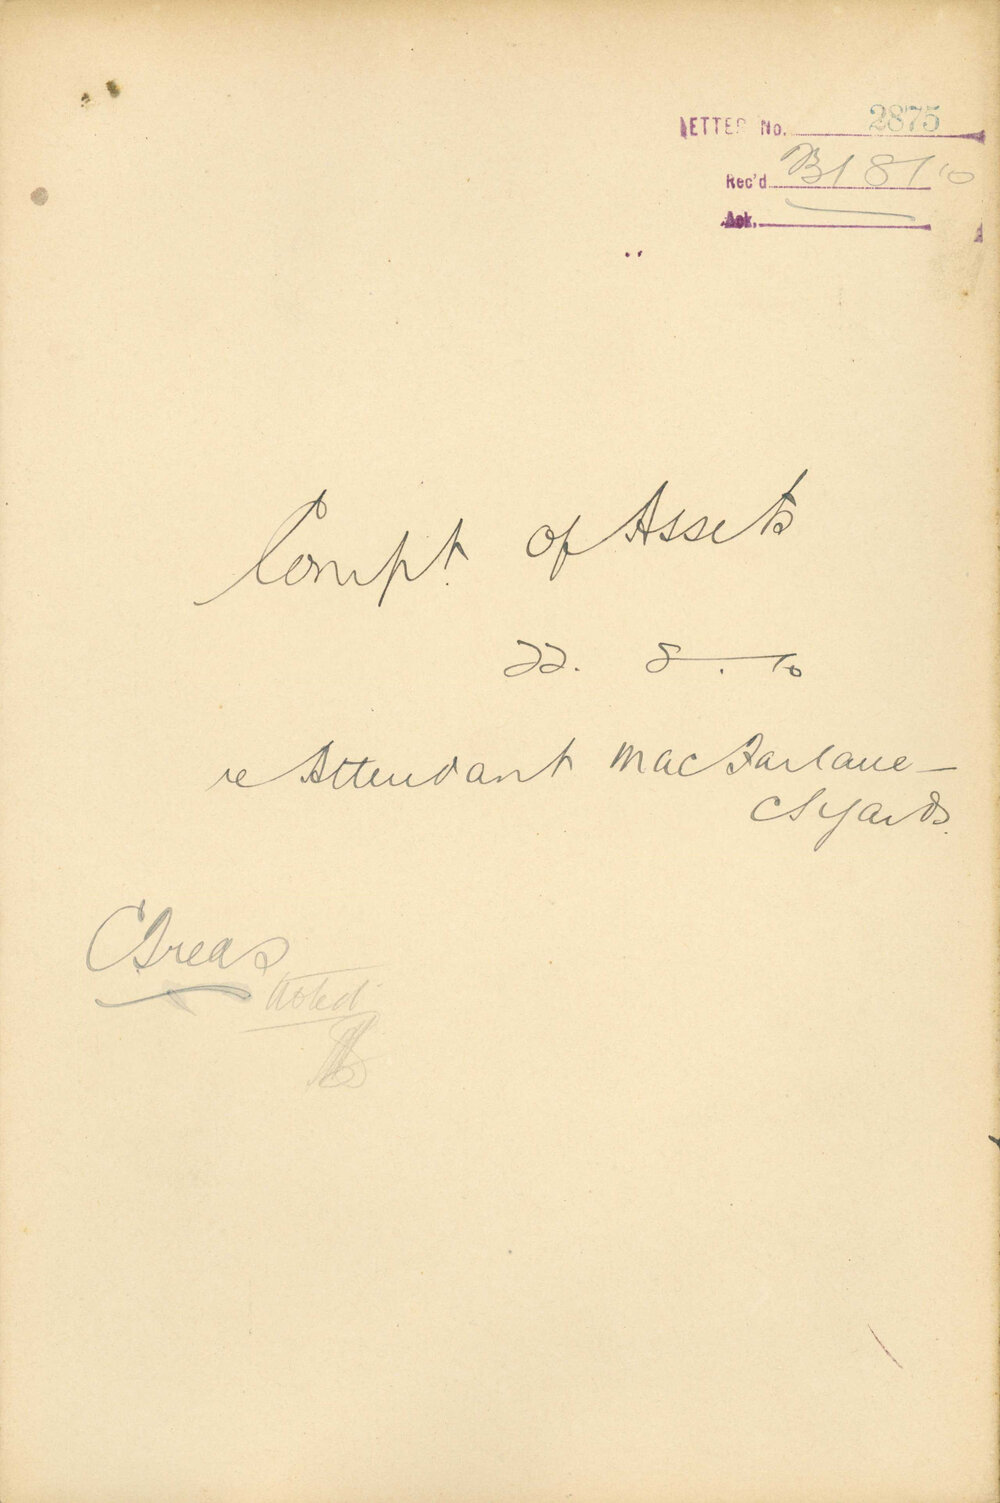 LETTER No. 2875
Rec'd 31 8 10
Ack.
Compt. of Assets
22. 8. 10
re Attendant MacFarlane —
CSyards.
CTreas
Noted